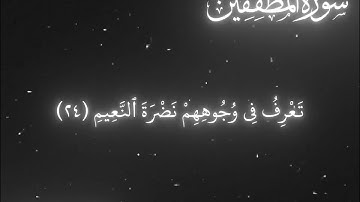 سورة المطففين
تَعْرِفُ فِى وُجُوهِهِمْ نَضْرَةَ ٱلنَّعِيمِ (٢٤)